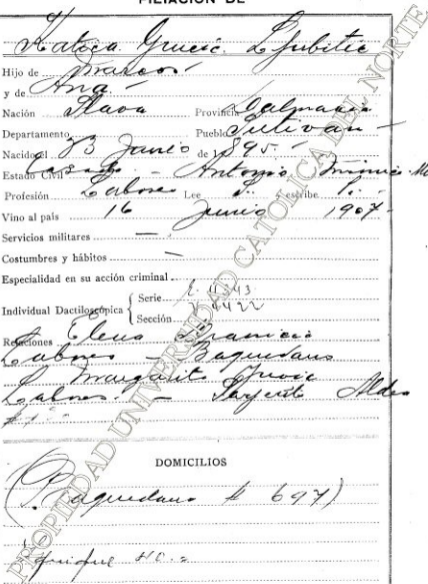 FILIACIÓN DE
Katica Grucic Ljubitic
Hijo de Marcos
y de Ana
Nación Slava Provincia Dalmacia
Departamento Pueblo Sutivan
Nacido el 23 Junio de 1895.-
Estado Civil Casada - Antonio
Profesión Labores Lee S. y escribe S.
Vino al país 16 Junio 1907-
Servicios militares —
Costumbres y hábitos —
Especialidad en su acción criminal
Individual Dactiloscópica { Serie
Sección
Relaciones Elena
Labores - Baquedano
Margarita
Labores - Sargento Aldea
DOMICILIOS
(Baquedano # 697)
Iquique
PROPIEDAD UNIVERSIDAD CATOLICA DEL NORTE